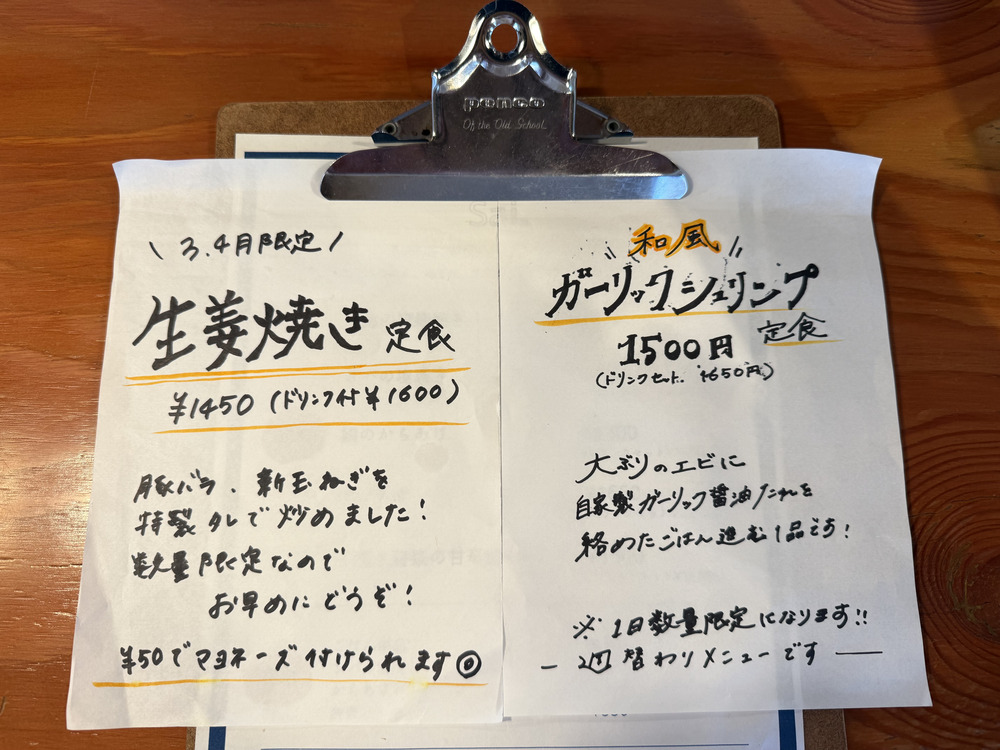 penco
Of the Old School
\ 3.4月限定 /
生姜焼き 定食
¥1450 (ドリンク付 ¥1600)
豚バラ、新玉ねぎを
特製タレで炒めました!
数量限定なので
お早めにどうぞ!
¥50でマヨネーズ付けられます◎
和風
ガーリックシュリンプ
定食
1500円
(ドリンクセット. 1650円)
大ぶりのエビに
自家製ガーリック醤油たれを
絡めたごはん進む1品です!
※1日数量限定になります!!
― 週替わりメニューです ―